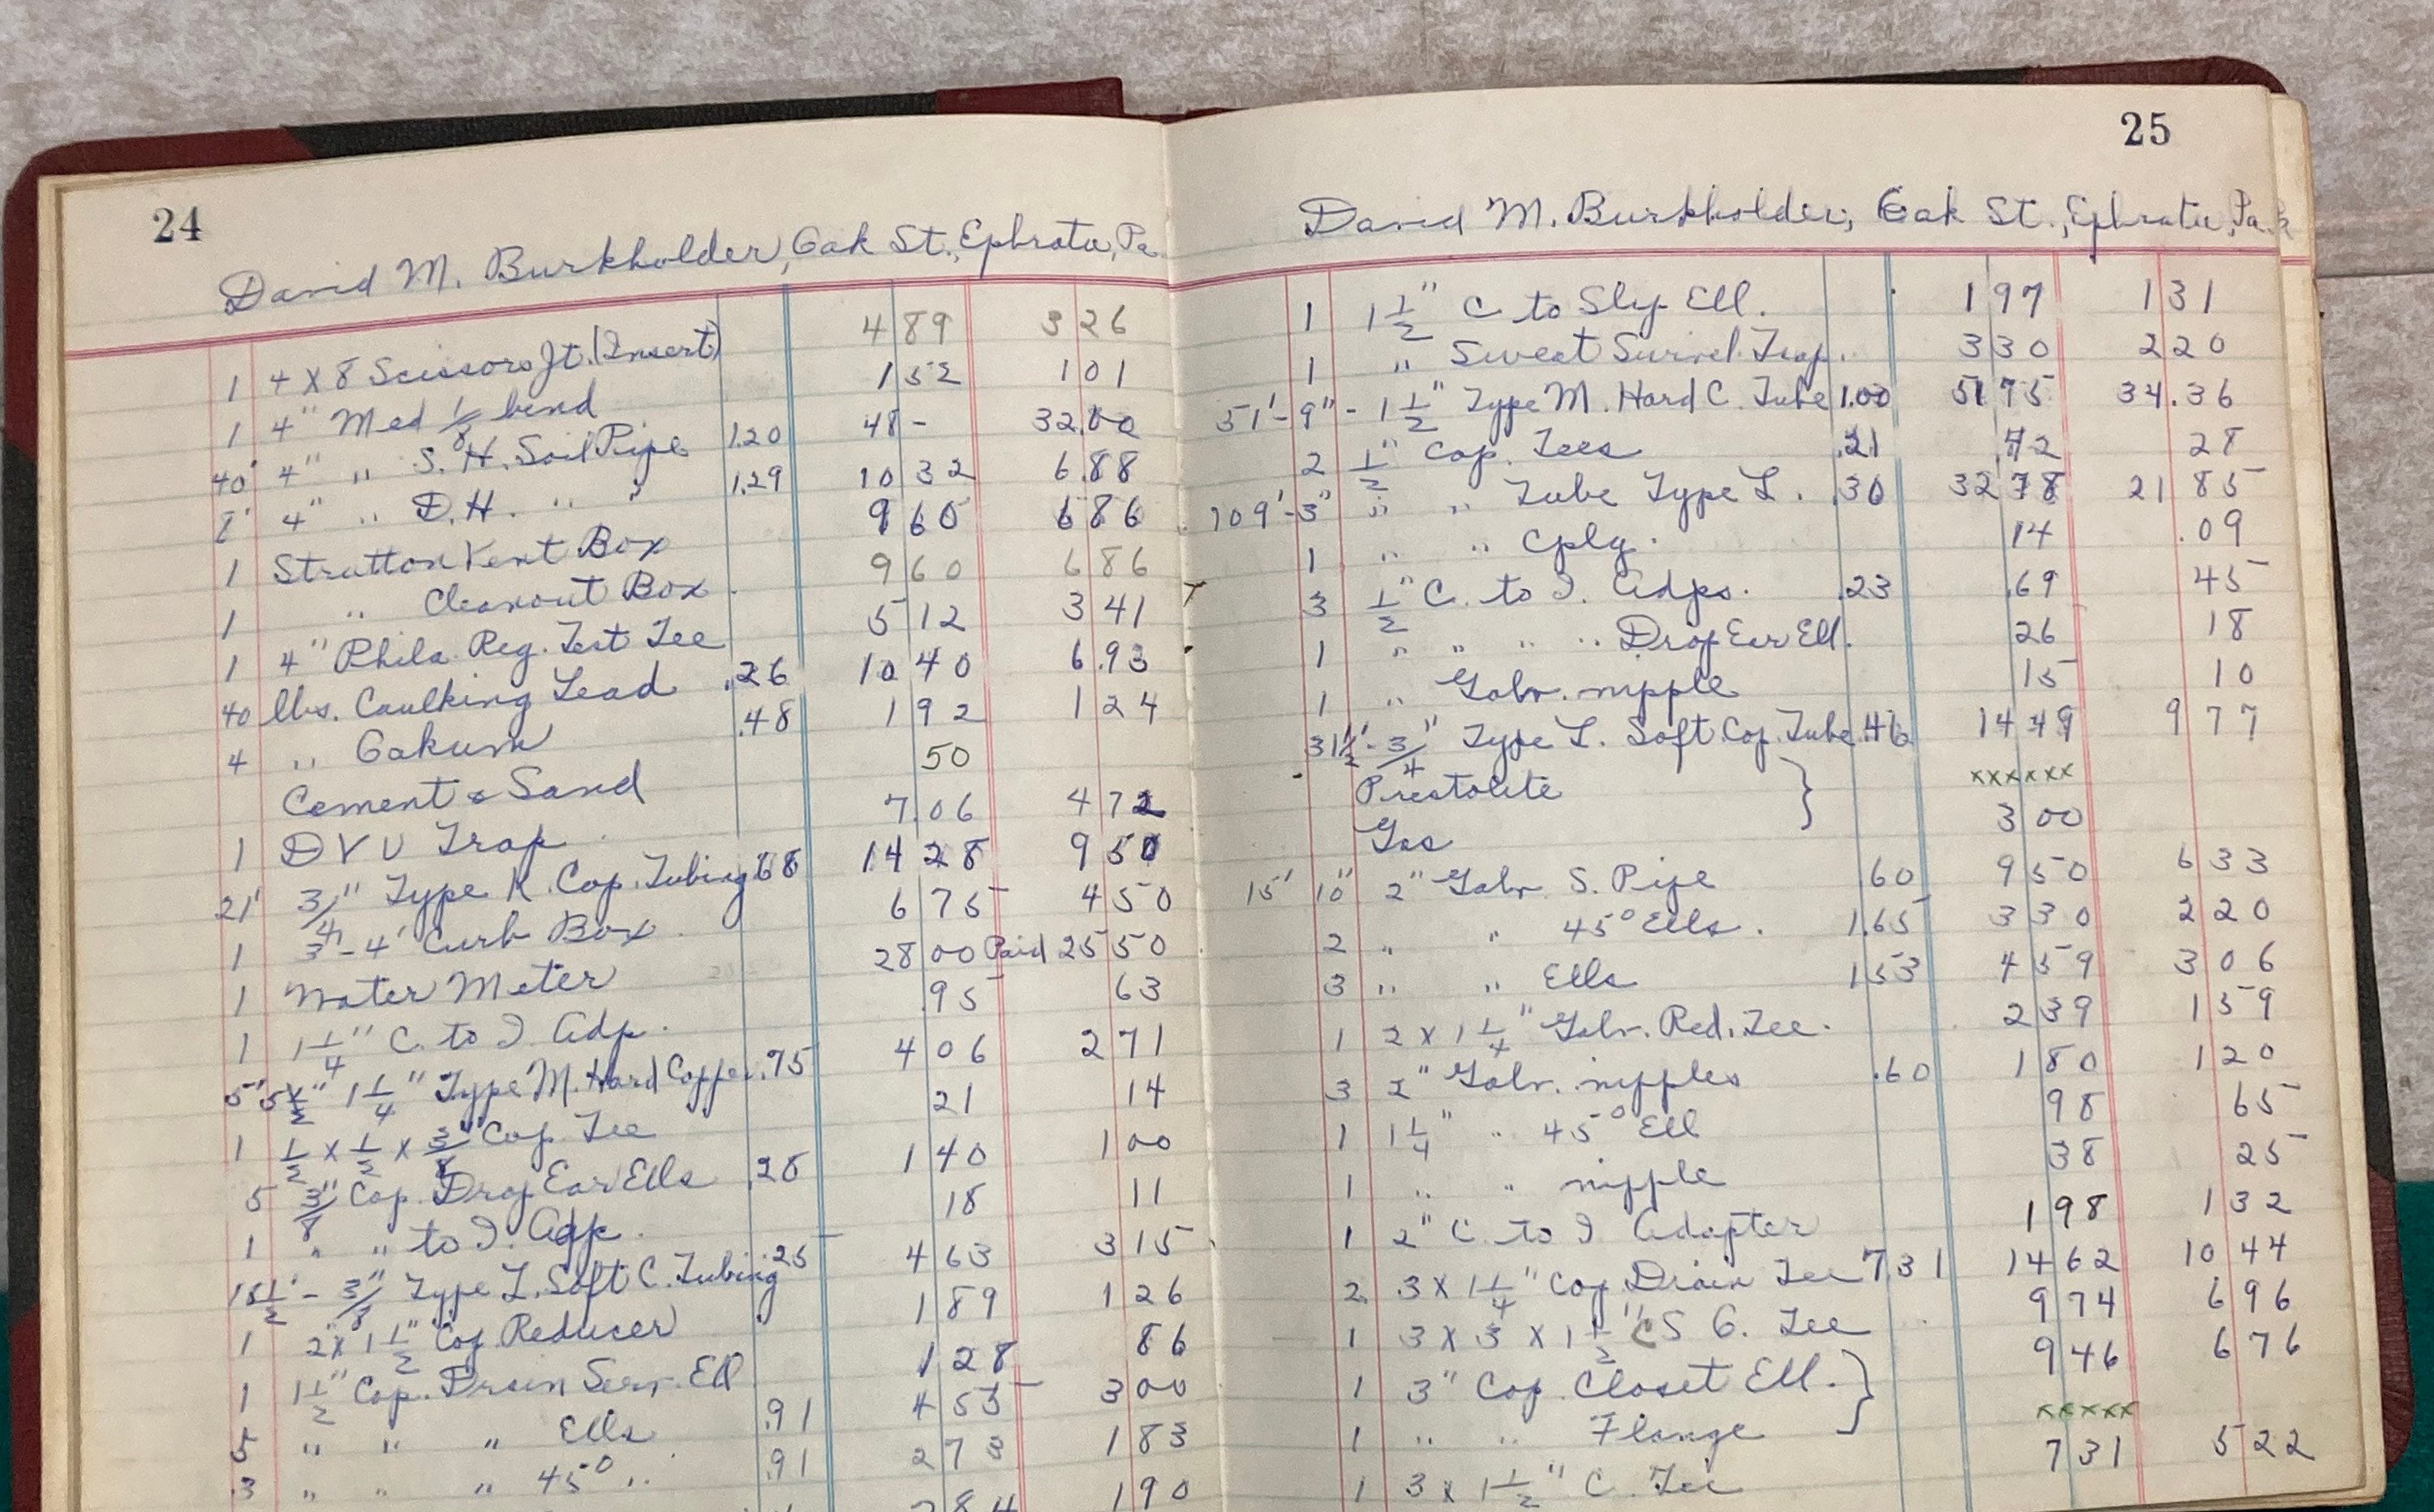 24
David M. Burkholder, Oak St., Ephrata, Pa
1 4 x 8 Scissors Jt. (Insert) 4 89 3 26
1 4" Med 1/8 bend 1 52 1 01
40' 4" " S.H. Soil Pipe 1.20 48 - 32.00
8' 4" " D.H. " " 1.29 10 32 6.88
1 Stratton Vent Box 9 60 6 86
1 " Cleanout Box 9 60 6 86
1 4" Phila. Reg. Test Tee 5 12 3 41
40 lbs. Caulking Lead .26 10 40 6.93
4 " Oakum .48 1 92 1 24
Cement & Sand 50
1 D V U Trap 7.06 4 72
21' 3/4" Type K. Cop. Tubing 68 14 28 9 50
1 3'-4' Curb Box 6 75 4 50
1 Water Meter 28 00 Paid 25 50
1 1 1/4" C. to I. Adp. .95 63
5' 5 1/2" 1 1/4" Type M. Hard Copper .75 4 06 2 71
1 1/2 x 1/2 x 3/8" Cop. Tee 21 14
5 3/8" Cop. Drop Ear Ells .28 1 40 1 00
1 " " to I. Adp. 18 11
18 1/2' - 3/8" Type L. Soft C. Tubing .25 4 63 3 15
1 2" x 1 1/2" Cop Reducer 1 89 1 26
1 1 1/2" Cop. Drain Serv. Ell 1 28 86
5 " " " Ells .91 4 55 3 00
3 " " " 45° " .91 2 73 1 83
2 84 1 90
25
David M. Burkholder, Oak St., Ephrata, Pa.
1 1 1/2" C to Slip Ell. 1 97 1 31
1 " Sweat Swivel Trap. 3 30 2 20
51'-9" - 1 1/2" Type M. Hard C. Tube 1.00 51 75 34.36
2 1/2" Cop. Tees .21 .42 28
109'-3" " " Tube Type L. .30 32 78 21 85
1 " " Cplg. 14 .09
3 1/2" C. to I. Adps. .23 .69 45
1 " " " " Drop Ear Ell. 26 18
1 " Galv. nipple 15 10
31 1/2' - 3/4" Type L. Soft Cop. Tube .46 14 49 9 77
Prestolite } xxxxxx
Gas 3 00
15' 10" 2" Galv. S. Pipe .60 9 50 6 33
2 " " 45° Ells. 1.65 3 30 2 20
3 " " Ells 1.53 4 59 3 06
1 2 x 1 1/4" Galv. Red. Tee. 2 39 1 59
3 2" Galv. nipples .60 1 80 1 20
1 1 1/4" " 45° Ell 98 65
1 " " nipple 38 25
1 2" C. to I Adapter 1 98 1 32
2 3 x 1 1/4" Cop Drain Tee 7 31 14 62 10 44
1 3 x 3 x 1 1/2" C S O. Tee 9 74 6 96
1 3" Cop. Closet Ell. } 9 46 6 76
1 " " Flange xxxxx
1 3 x 1 1/2" C. Tee 7 31 5 22